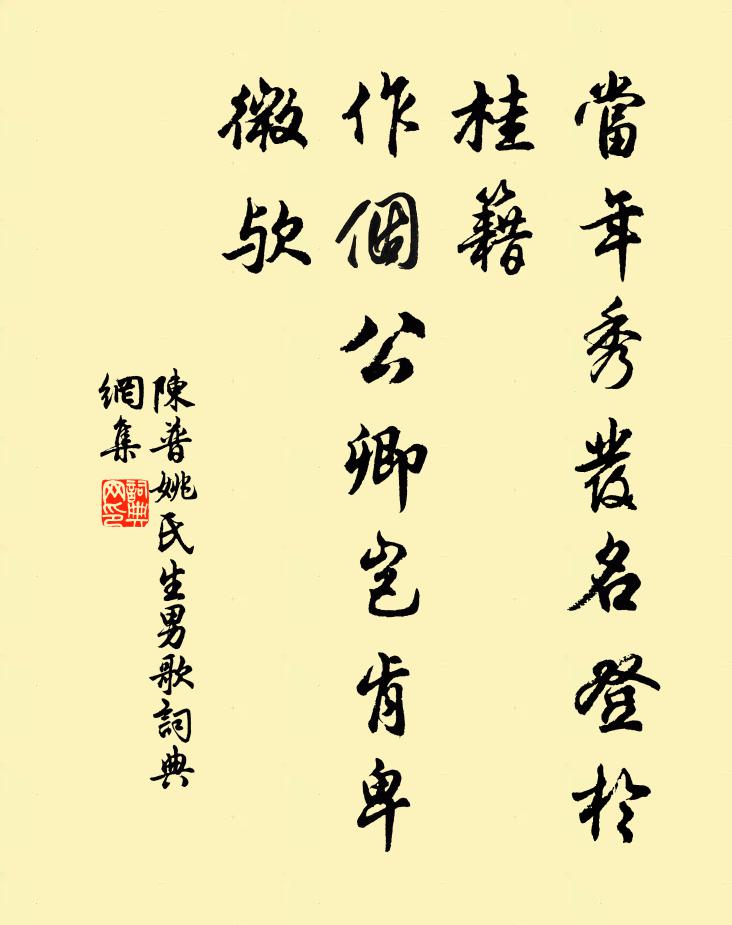 當年秀發名登於
桂籍
作個公卿岂肯卑
微欤
陳普姚氏生男歌詞典
網集
詞典
网印